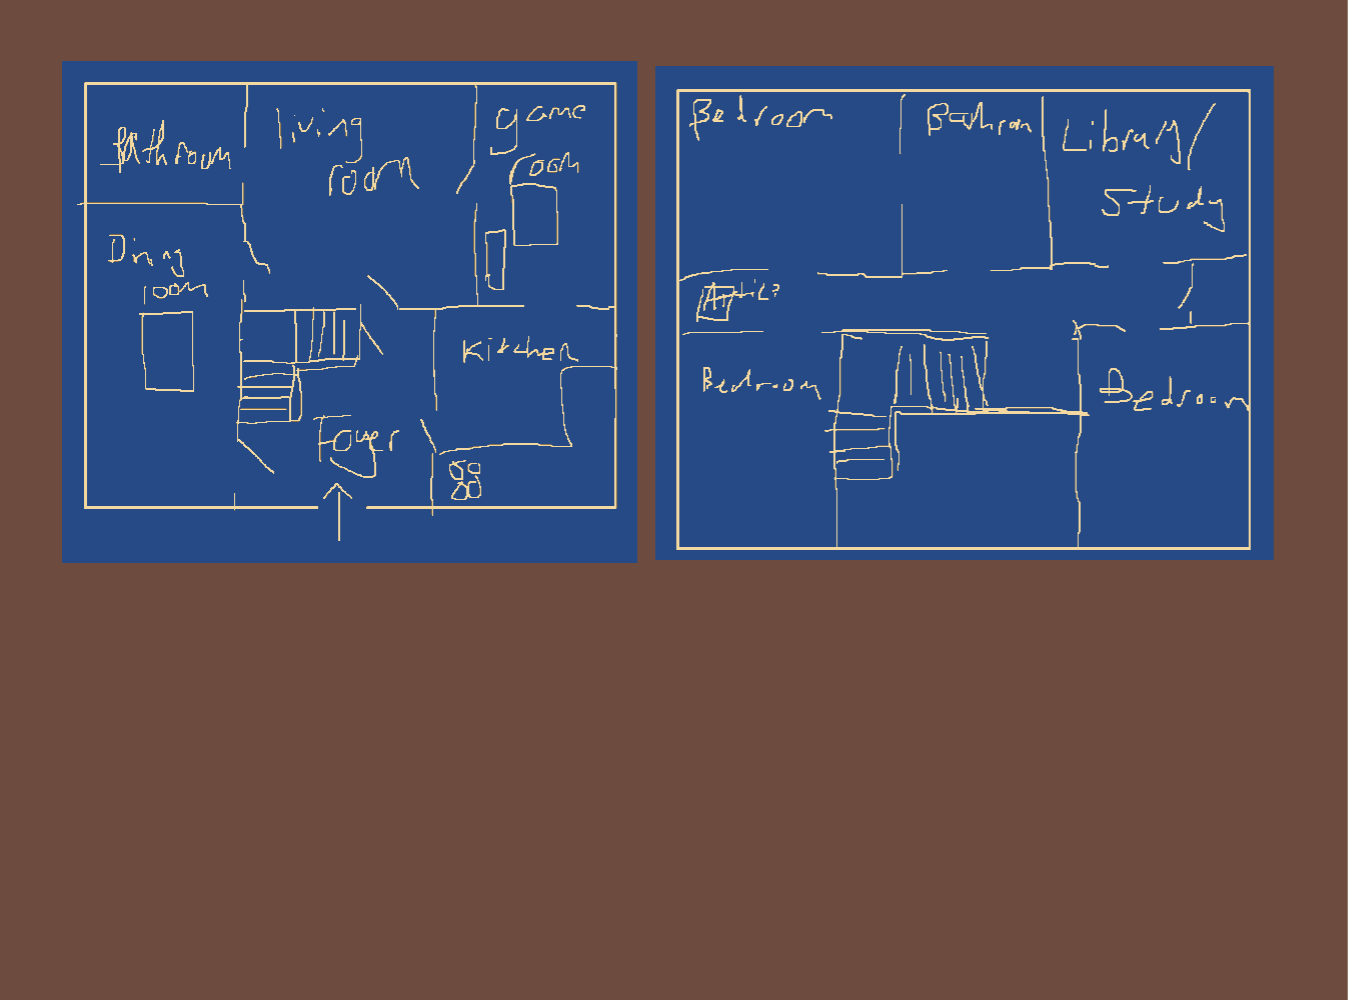 Bathroom
living
room
game
room
Dining
room
Kitchen
Foyer
Bedroom
Bathroom
Library/
Study
Attic?
Bedroom
Bedroom